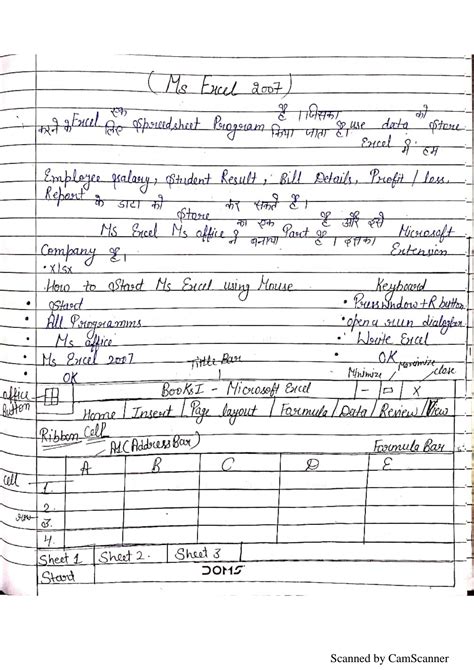 ( Ms Excel 2007 )
Excel एक Spreadsheet Program है । जिसका use data को Store
करने के लिए किया जाता है। Excel में हम
Employee salary, Student Result, Bill Details, Profit / loss
Report के डाटा को Store कर सकते हैं ।
Ms Excel Ms office का एक Part है और इसे Microsoft
Company ने बनाया है । इसका Extension
• xlsx
How to Start Ms Excel using Mouse Keyboard
• Start • Press window + R button
• All Programms • open a run dialogbox
• Ms office • Write Excel
• Ms Excel 2007 • OK
OK Title Bar Minimize Maximize close
office Button Book1 - Microsoft Excel - X
Home / Insert / Page layout / Formula / Data / Review / View
Ribbon Cell
A1 (Address Bar) Formula Bar
A B C D E
cell 1.
2.
row 3.
4.
Sheet 1 Sheet 2. Sheet 3
Start DOMS
Scanned by CamScanner